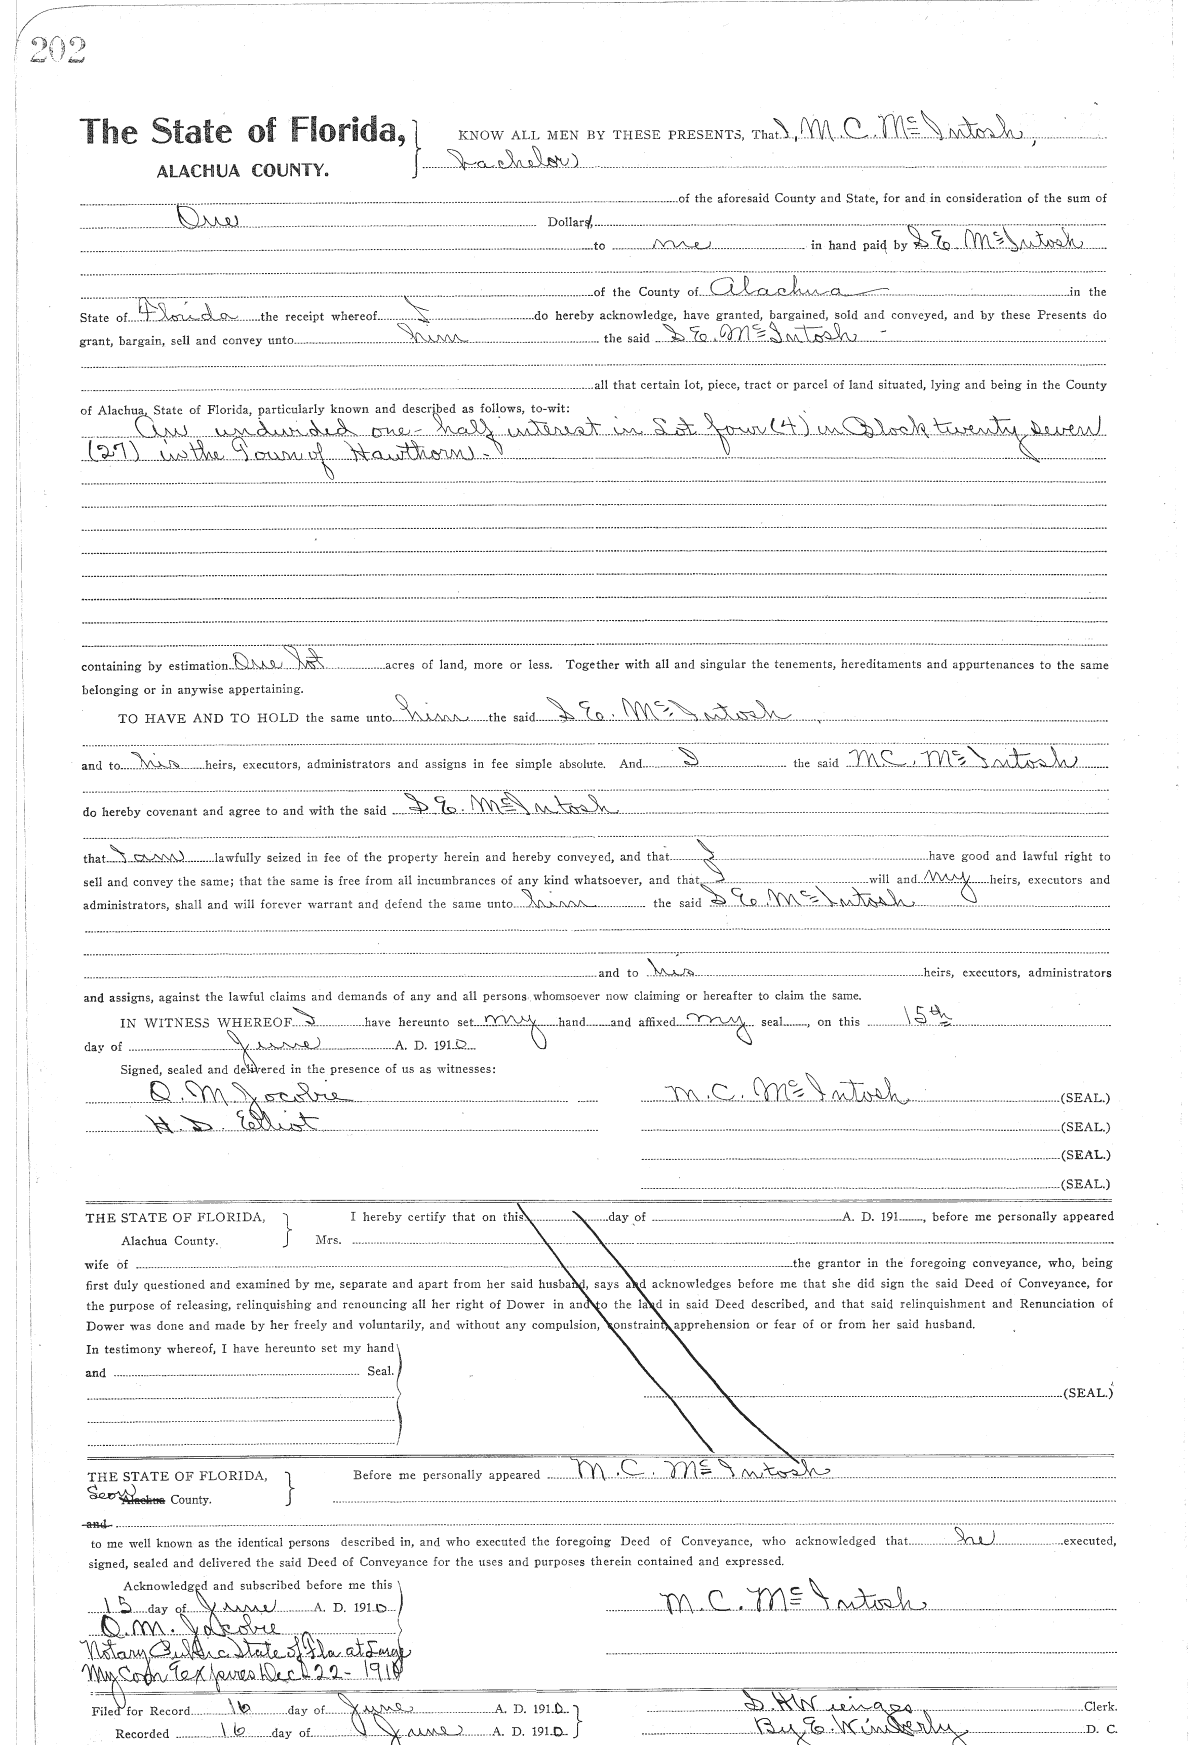 202
The State of Florida,
ALACHUA COUNTY.
KNOW ALL MEN BY THESE PRESENTS, That I, M. C. McIntosh,
bachelor
of the aforesaid County and State, for and in consideration of the sum of
One Dollar,
to me in hand paid by S. E. McIntosh
of the County of Alachua in the
State of Florida the receipt whereof I do hereby acknowledge, have granted, bargained, sold and conveyed, and by these Presents do
grant, bargain, sell and convey unto him the said S. E. McIntosh -
all that certain lot, piece, tract or parcel of land situated, lying and being in the County
of Alachua, State of Florida, particularly known and described as follows, to-wit:
An undivided one-half interest in Lot four (4) in Block twenty seven
(27) in the Town of Hawthorn -
containing by estimation One lot acres of land, more or less. Together with all and singular the tenements, hereditaments and appurtenances to the same
belonging or in anywise appertaining.
TO HAVE AND TO HOLD the same unto him the said S. E. McIntosh
and to his heirs, executors, administrators and assigns in fee simple absolute. And I the said M. C. McIntosh
do hereby covenant and agree to and with the said S. E. McIntosh
that I am lawfully seized in fee of the property herein and hereby conveyed, and that I have good and lawful right to
sell and convey the same; that the same is free from all incumbrances of any kind whatsoever, and that I will and my heirs, executors and
administrators, shall and will forever warrant and defend the same unto him the said S. E. McIntosh
and to his heirs, executors, administrators
and assigns, against the lawful claims and demands of any and all persons whomsoever now claiming or hereafter to claim the same.
IN WITNESS WHEREOF I have hereunto set my hand and affixed my seal, on this 15th
day of June A. D. 1910
Signed, sealed and delivered in the presence of us as witnesses:
O. M. Jacobie M. C. McIntosh (SEAL.)
H. D. Elliot (SEAL.)
(SEAL.)
(SEAL.)
THE STATE OF FLORIDA, I hereby certify that on this day of A. D. 191, before me personally appeared
Alachua County. Mrs.
wife of the grantor in the foregoing conveyance, who, being
first duly questioned and examined by me, separate and apart from her said husband, says and acknowledges before me that she did sign the said Deed of Conveyance, for
the purpose of releasing, relinquishing and renouncing all her right of Dower in and to the land in said Deed described, and that said relinquishment and Renunciation of
Dower was done and made by her freely and voluntarily, and without any compulsion, constraint, apprehension or fear of or from her said husband.
In testimony whereof, I have hereunto set my hand
and Seal.
(SEAL.)
THE STATE OF FLORIDA, Before me personally appeared M. C. McIntosh
Alachua County.
and
to me well known as the identical persons described in, and who executed the foregoing Deed of Conveyance, who acknowledged that he executed,
signed, sealed and delivered the said Deed of Conveyance for the uses and purposes therein contained and expressed.
Acknowledged and subscribed before me this
15 day of June A. D. 1910 M. C. McIntosh
O. M. Jacobie
Notary Public State of Fla. at Large
My Com Expires Dec 22 - 1910
Filed for Record 16 day of June A. D. 1910 S. H. Wienges Clerk.
Recorded 16 day of June A. D. 1910 By E. Wimberly D. C.